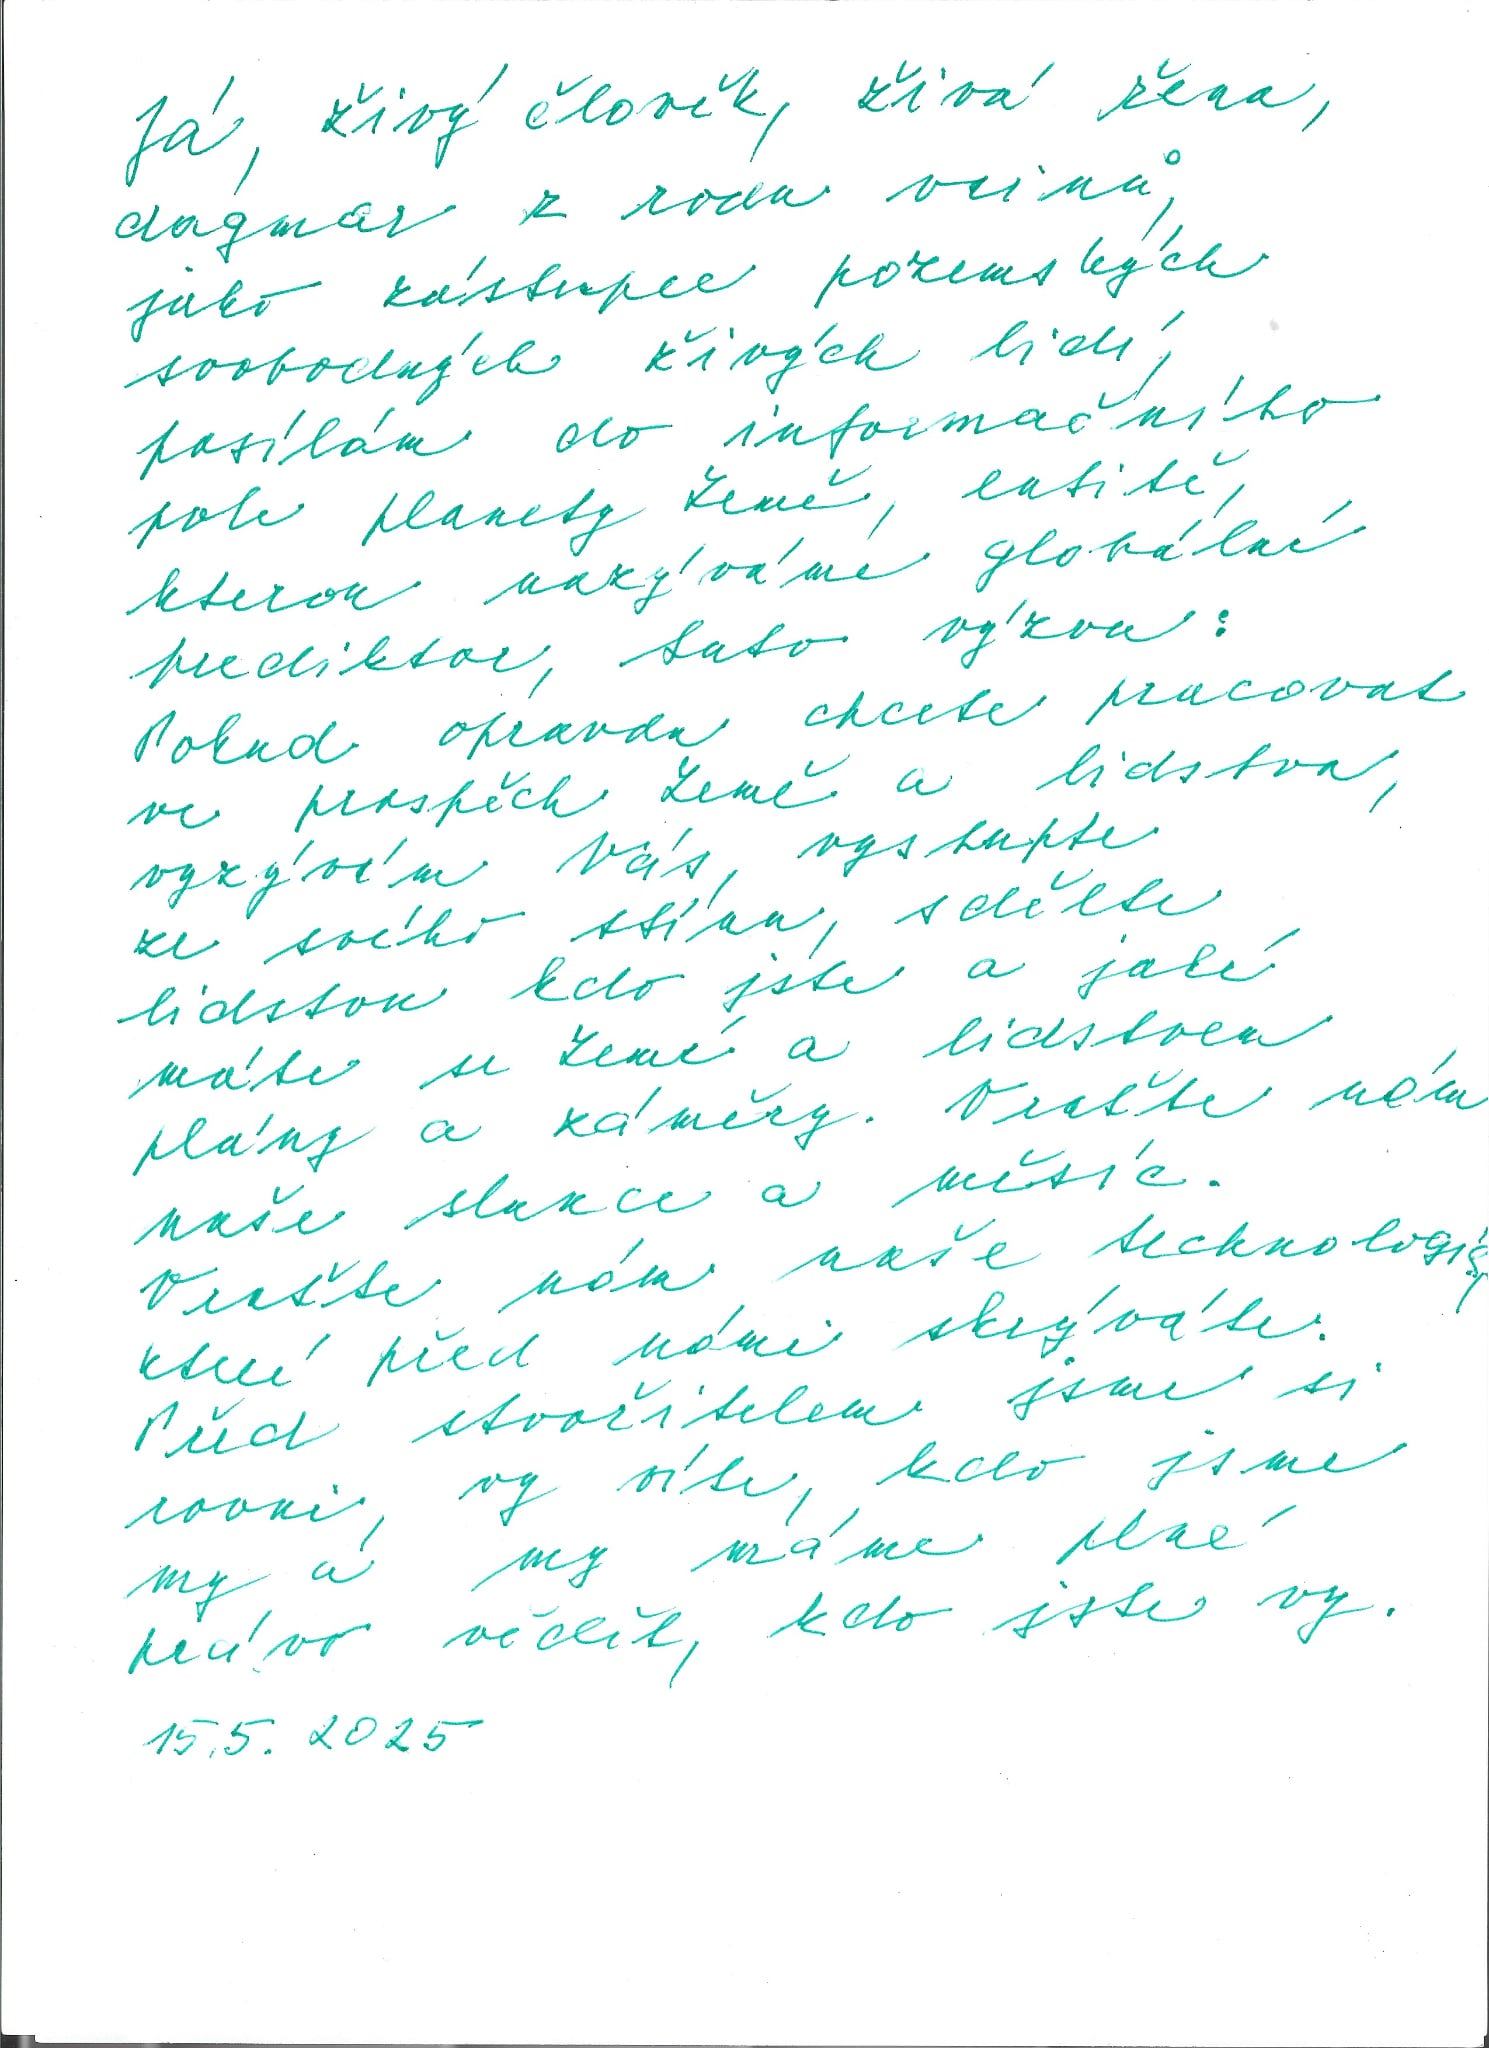 Já, živý člověk, živá žena,
dagmar z rodu vcinů,
jako zástupce pozemských
svobodných živých lidí,
posílám do informačního
pole planety Země, entitě,
kterou nazýváme globální
prediktor, tuto výzvu:
Pokud opravdu chcete pracovat
ve prospěch Země a lidstva,
vyzývám Vás, vystupte
ze svého stínu, sdělte
lidstvu kdo jste a jaké
máte se Zemí a lidstvem
plány a záměry. Vraťte nám
naše slunce a měsíc.
Vraťte nám naše technologie,
které před námi skrýváte.
Před stvořitelem jsme si
rovni, vy víte, kdo jsme
my a my máme plné
právo vědět, kdo jste vy.
15.5. 2025